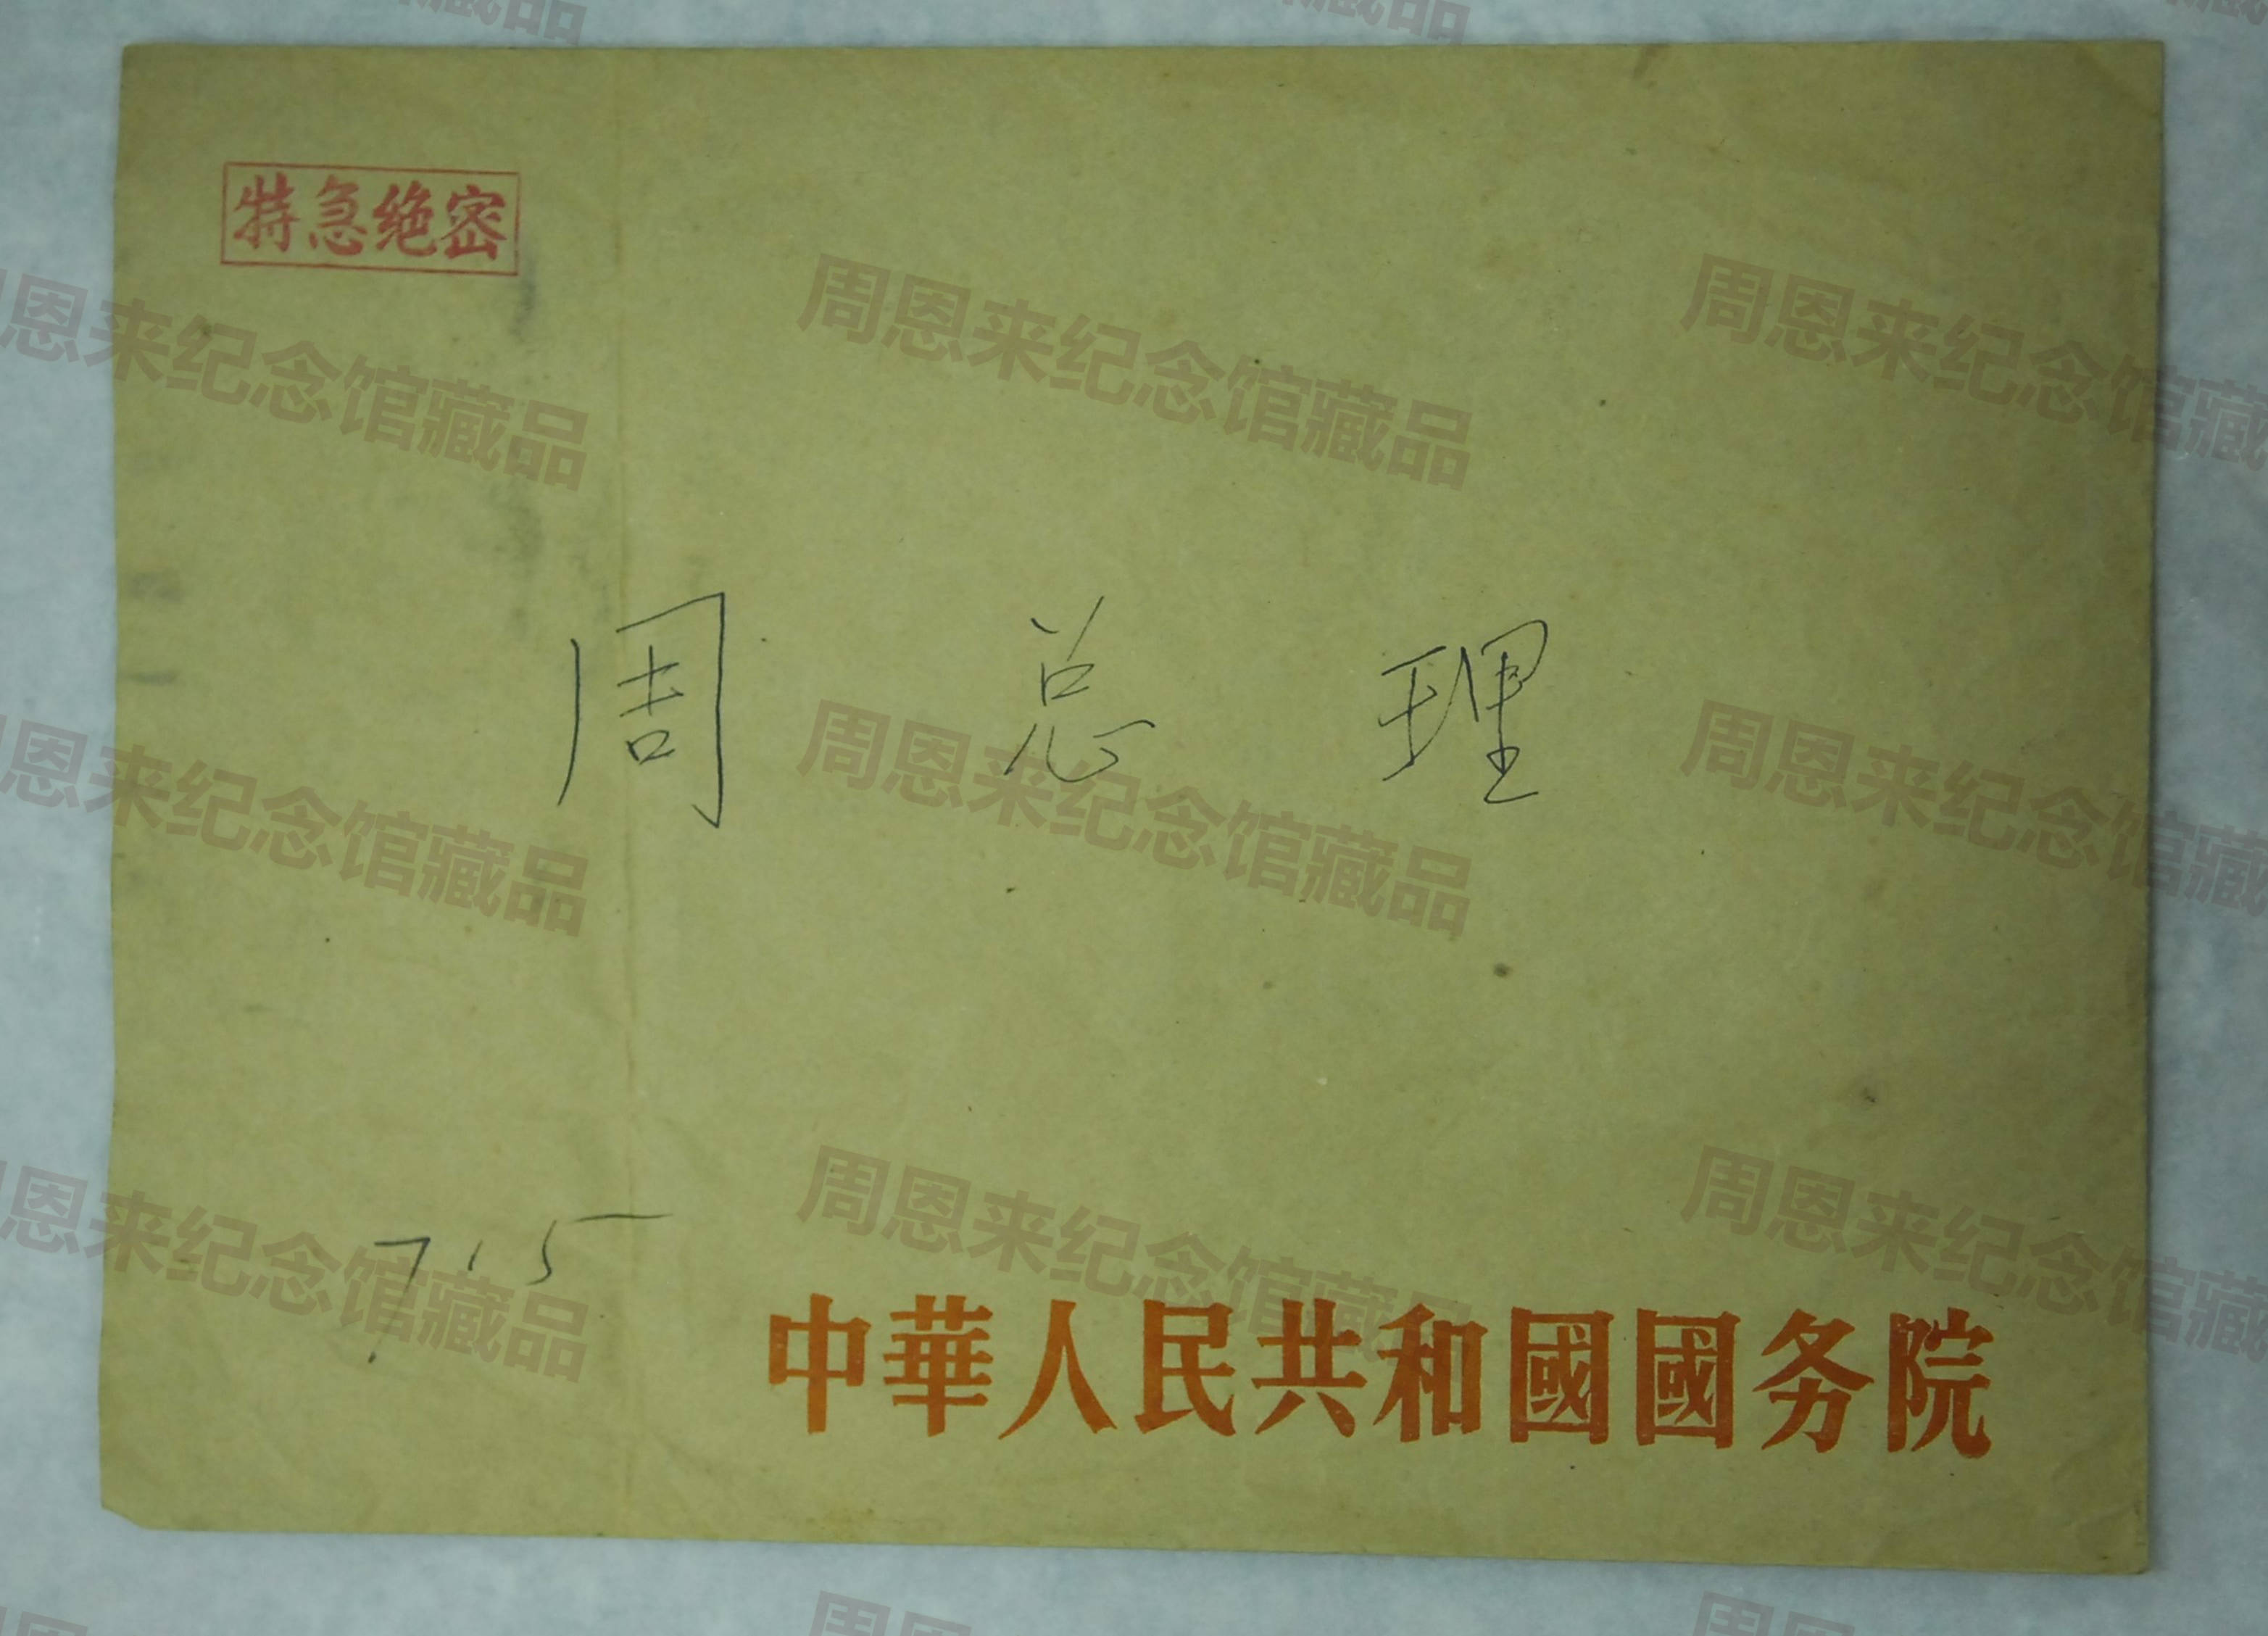 特急绝密
周总理
7.5
中華人民共和國國务院
周恩来纪念馆藏品